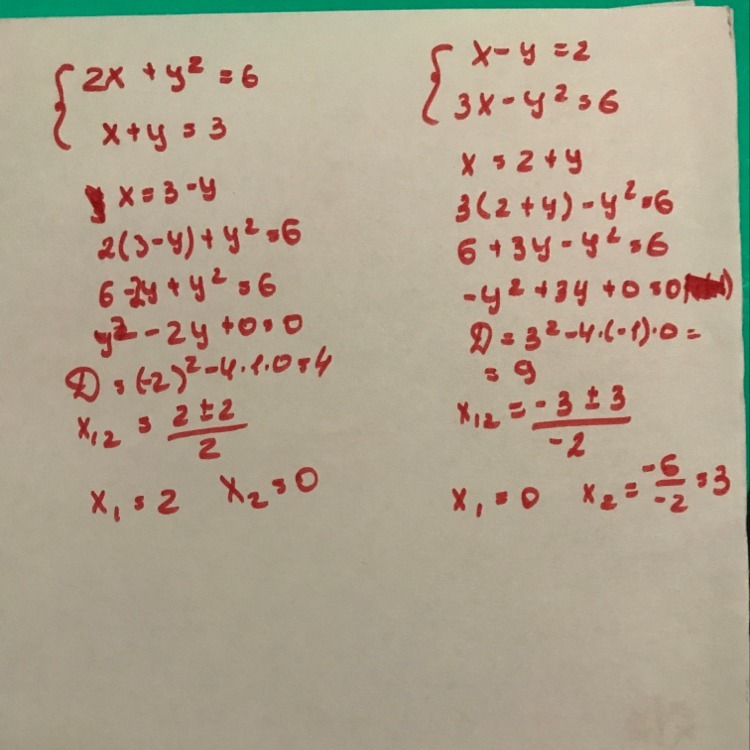 2x + y² = 6
x + y = 3
x = 3 - y
2(3-y) + y² = 6
6 - 2y + y² = 6
y² - 2y + 0 = 0
D = (-2)² - 4·1·0 = 4
x₁₂ = (2 ± 2)/2
x₁ = 2 x₂ = 0
x - y = 2
3x - y² = 6
x = 2 + y
3(2+y) - y² = 6
6 + 3y - y² = 6
-y² + 3y + 0 = 0
D = 3² - 4·(-1)·0 =
= 9
x₁₂ = (-3 ± 3)/-2
x₁ = 0 x₂ = -6/-2 = 3